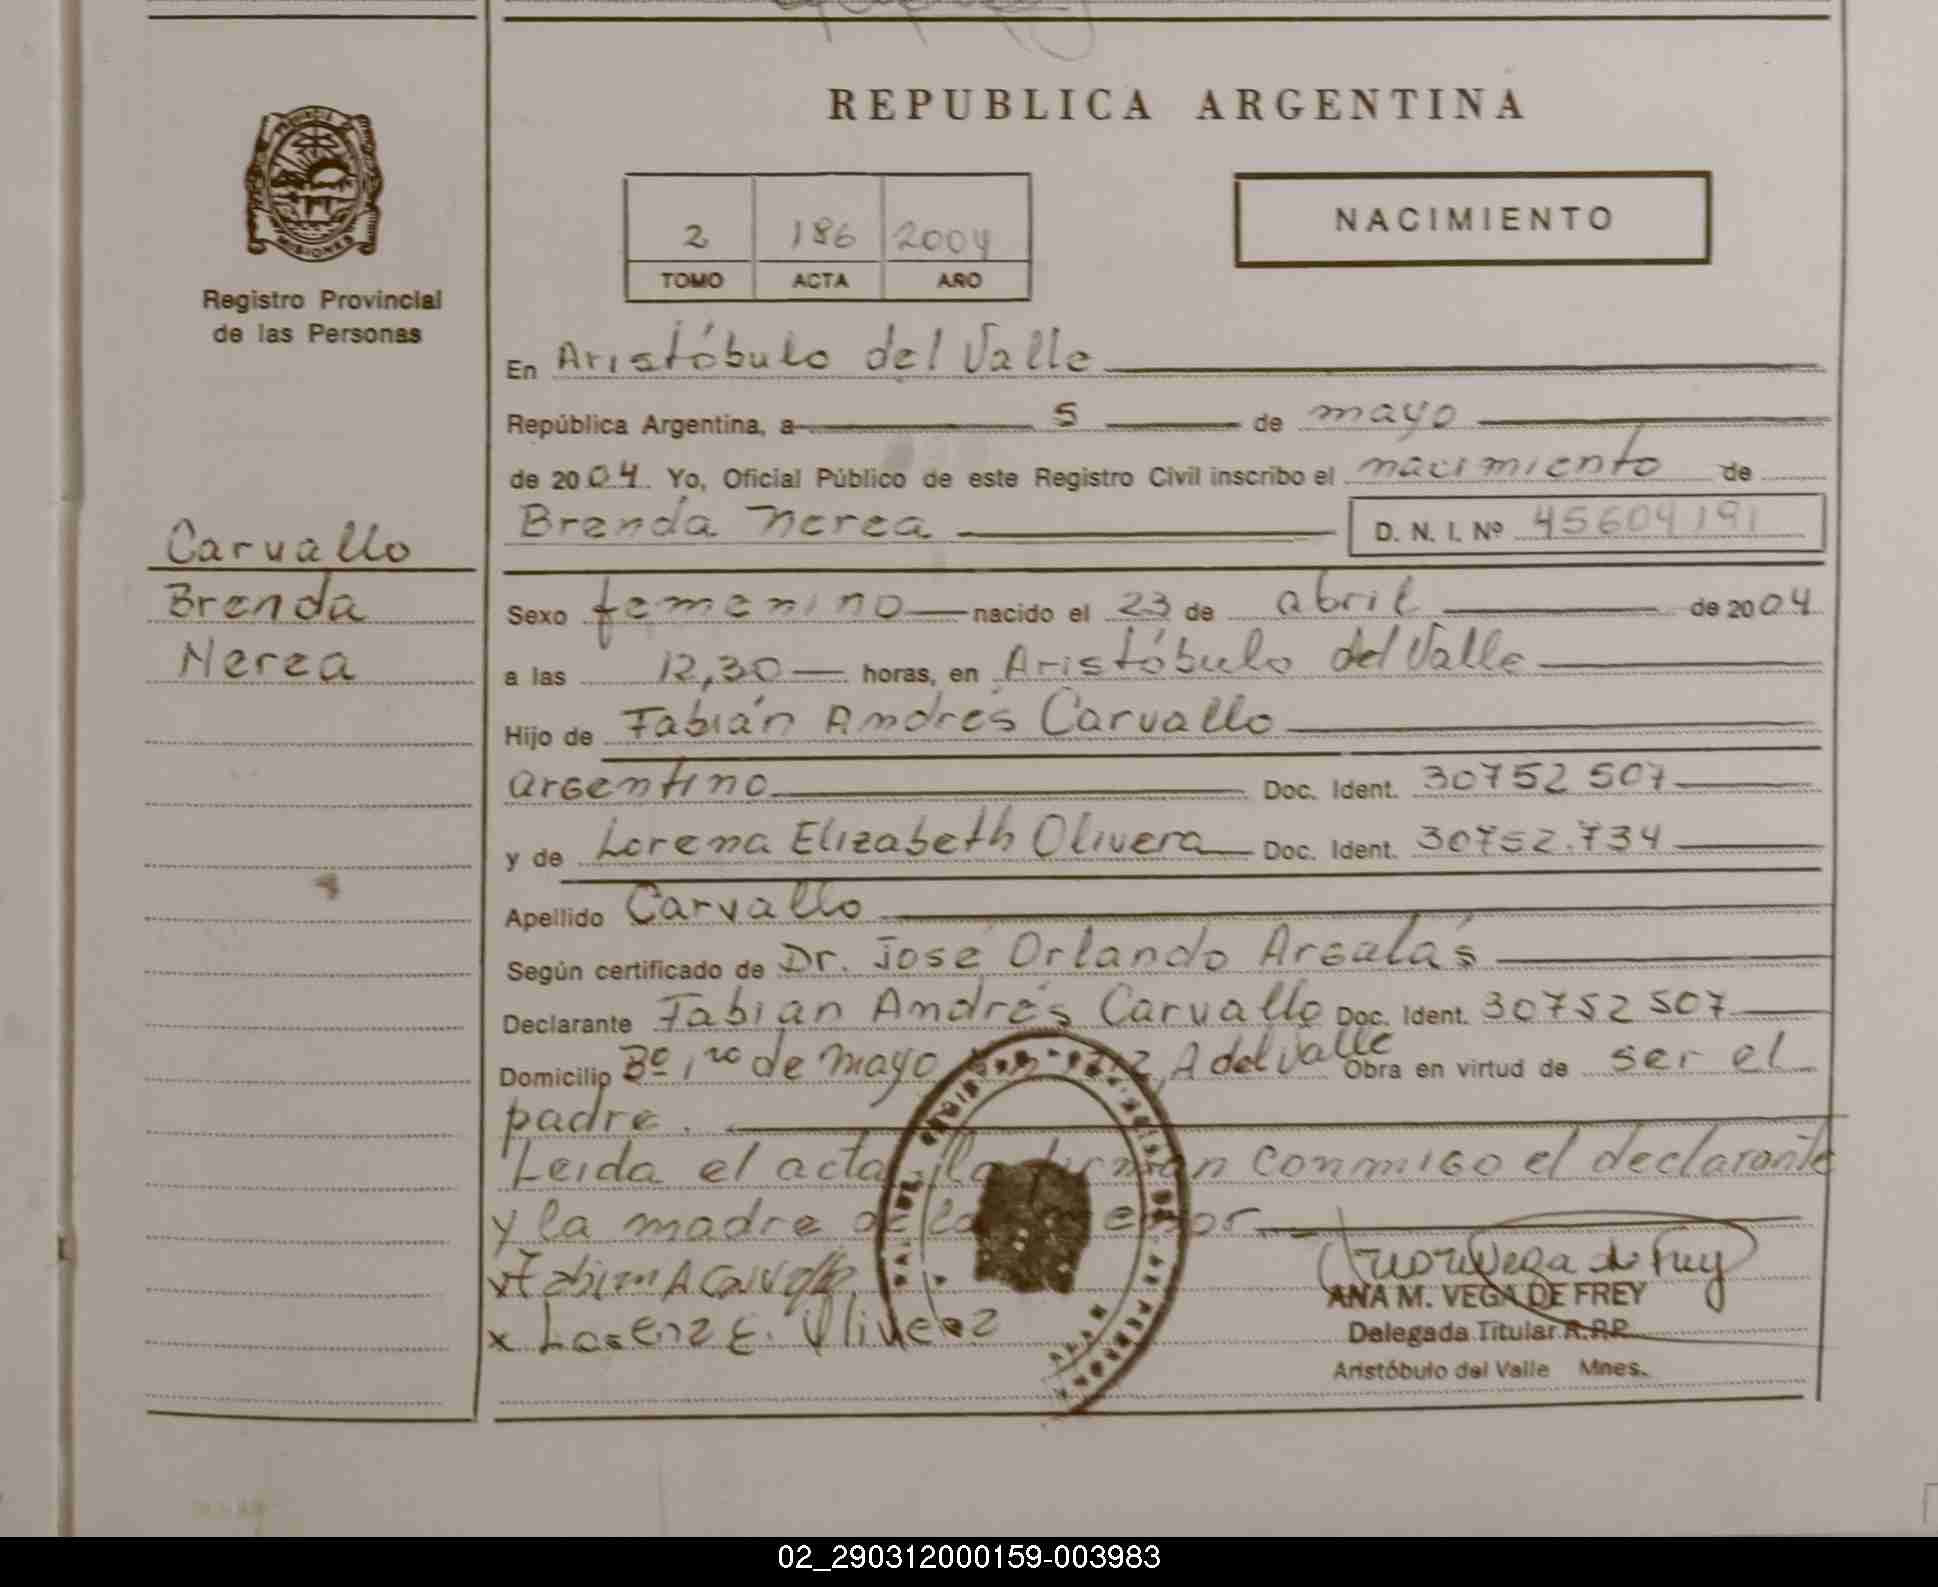 REPUBLICA ARGENTINA
PROVINCIA DE
MISIONES
Registro Provincial
de las Personas
2 186 2004
TOMO ACTA AÑO
NACIMIENTO
En Aristóbulo del Valle
República Argentina, a 5 de mayo
de 2004. Yo, Oficial Público de este Registro Civil inscribo el nacimiento de
Brenda Nerea D. N. I. Nº 45604191
Carvallo
Brenda
Nerea
Sexo femenino nacido el 23 de abril de 2004
a las 12,30 horas, en Aristóbulo del Valle
Hijo de Fabián Andrés Carvallo
argentino Doc. Ident. 30752507
y de Lorena Elizabeth Olivera Doc. Ident. 30752.734
Apellido Carvallo
Según certificado de Dr. José Orlando Argalás
Declarante Fabian Andrés Carvallo Doc. Ident. 30752507
Domicilio Bº 1ro de mayo A del Valle Obra en virtud de ser el
padre.
Leida el acta, la firman conmigo el declarante
y la madre de la menor.
x Fabian A Carvallo
x Lorena E. Olivera
Ana M Vega de Frey
ANA M. VEGA DE FREY
Delegada Titular R.P.P.
Aristóbulo del Valle Mnes.
02_290312000159-003983